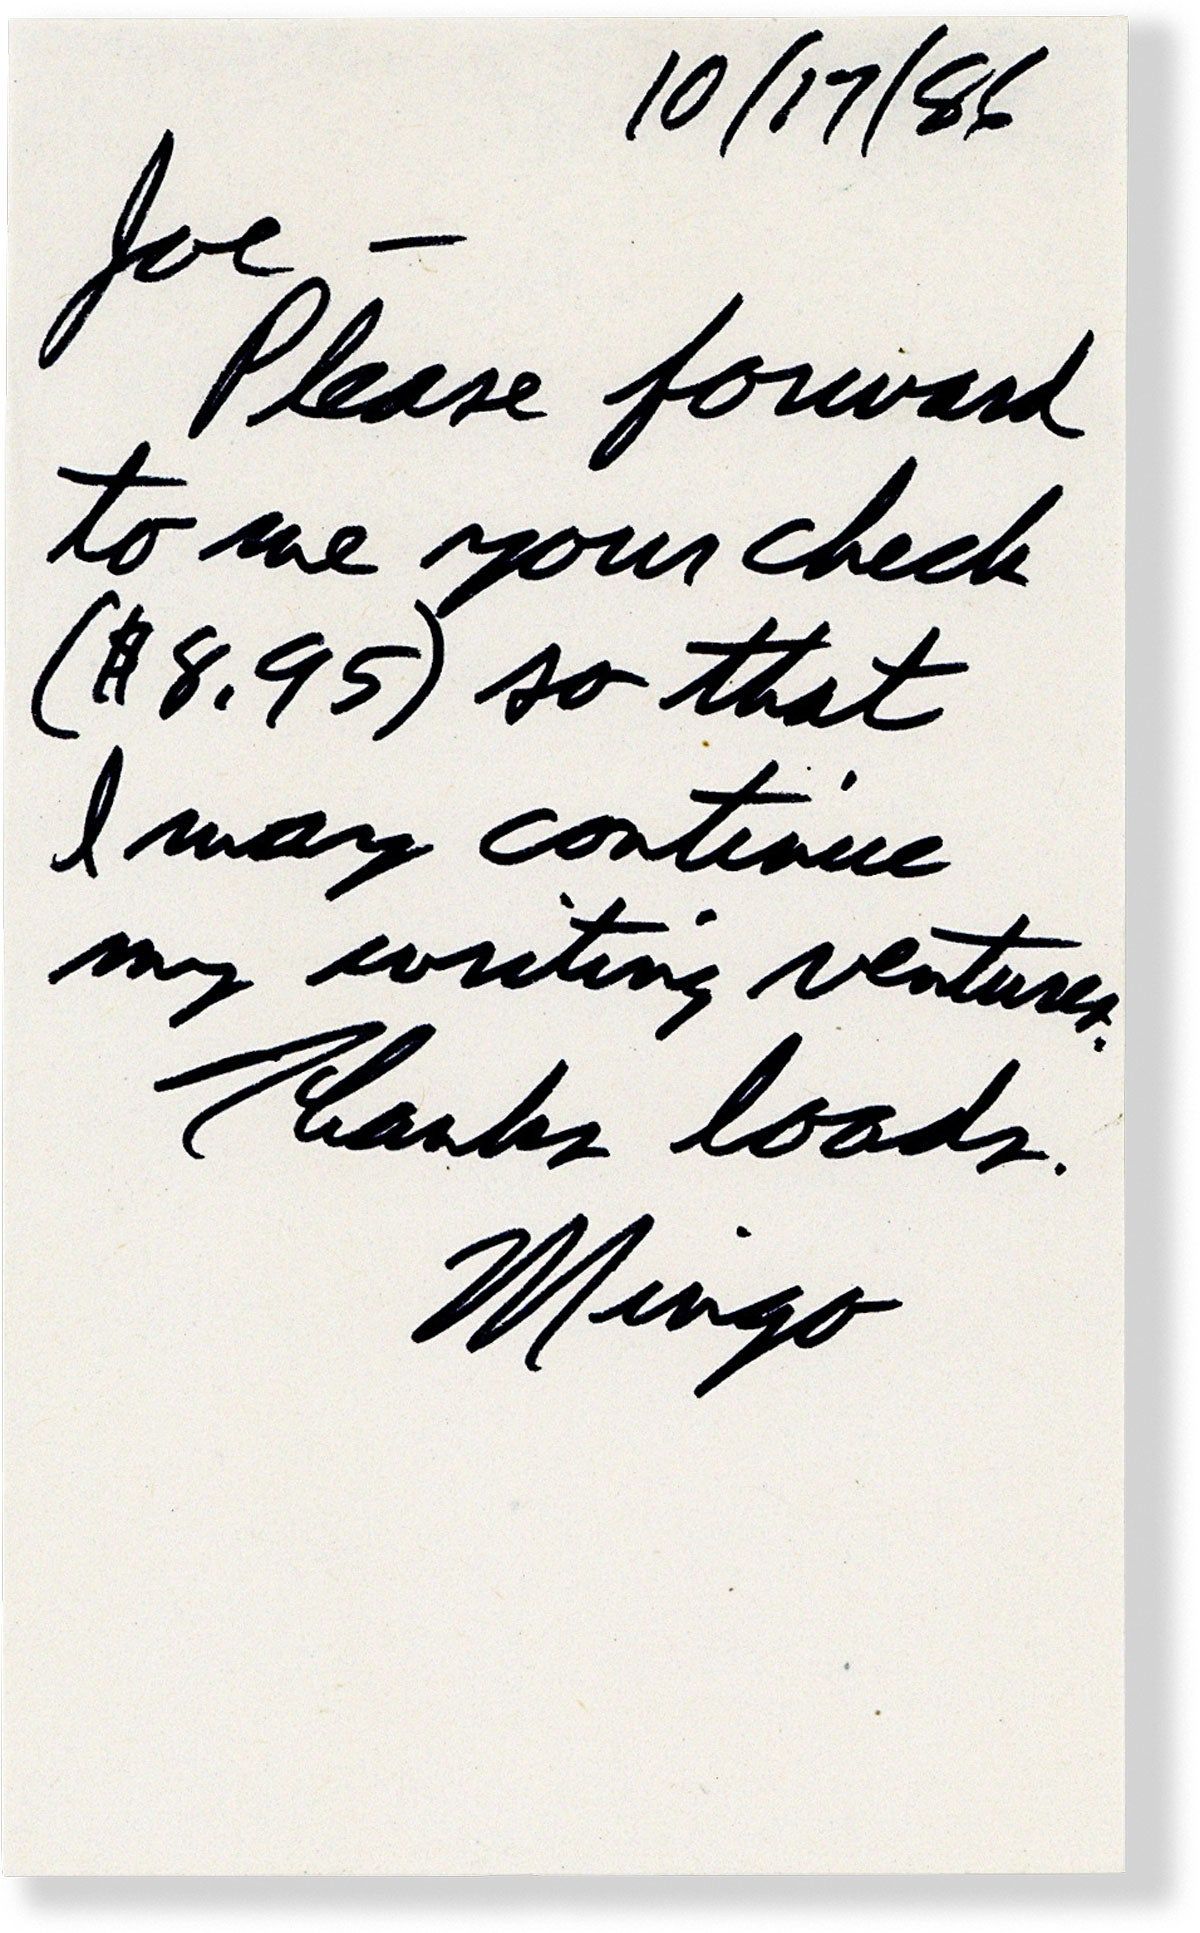 10/17/86
Joe —
Please forward
to me your check
($8.95) so that
I may continue
my writing ventures.
Thanks loads.
Mingo